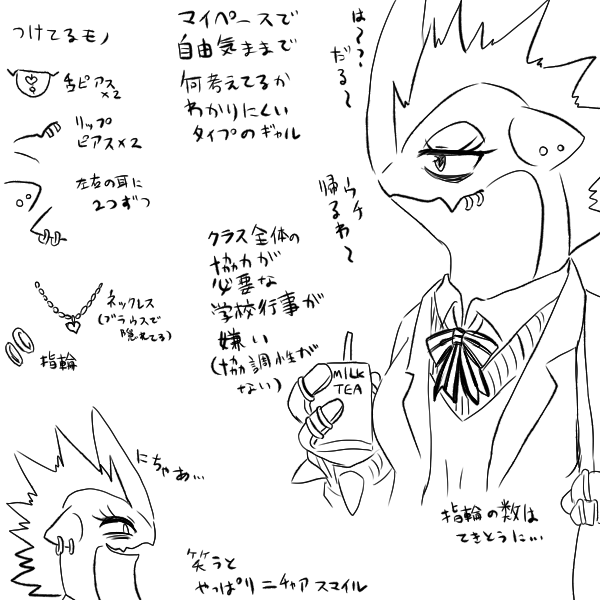 つけてるモノ
舌ピアス
×2
リップ
ピアス×2
左右の耳に
2つずつ
ネックレス
(ブラウスで
隠れてる)
指輪
マイペースで
自由気ままで
何考えてるか
わかりにくい
タイプのギャル
は〜?
だる〜
ウチ
帰るわ〜
クラス全体の
協力が
必要な
学校行事が
嫌い
(協調性が
ない)
MILK
TEA
指輪の数は
てきとうに…
にちゃあ…
笑うと
やっぱりニチャアスマイル